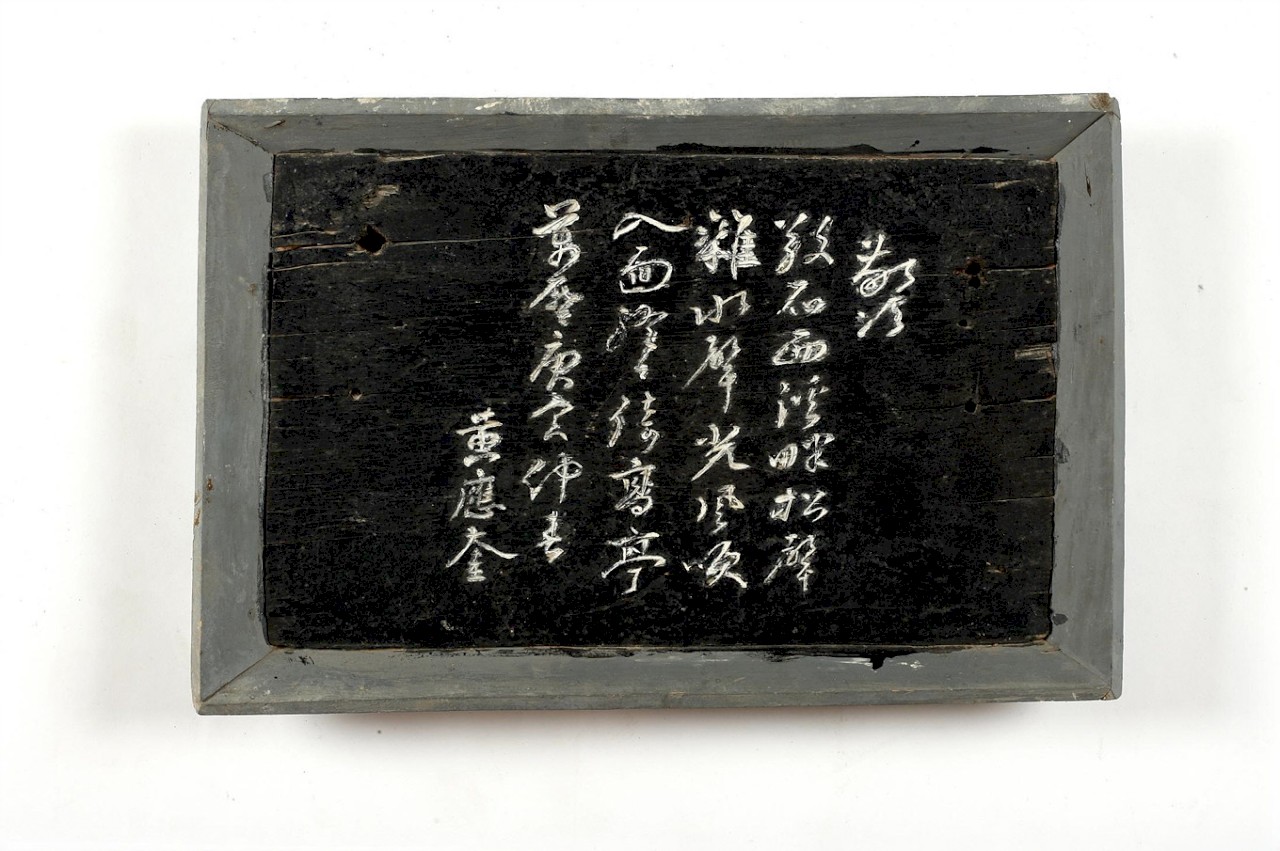 敬次
石西溪畔松聲
雜水聲光風吹
入面倚亭
萬曆庚寅仲春
黃應奎